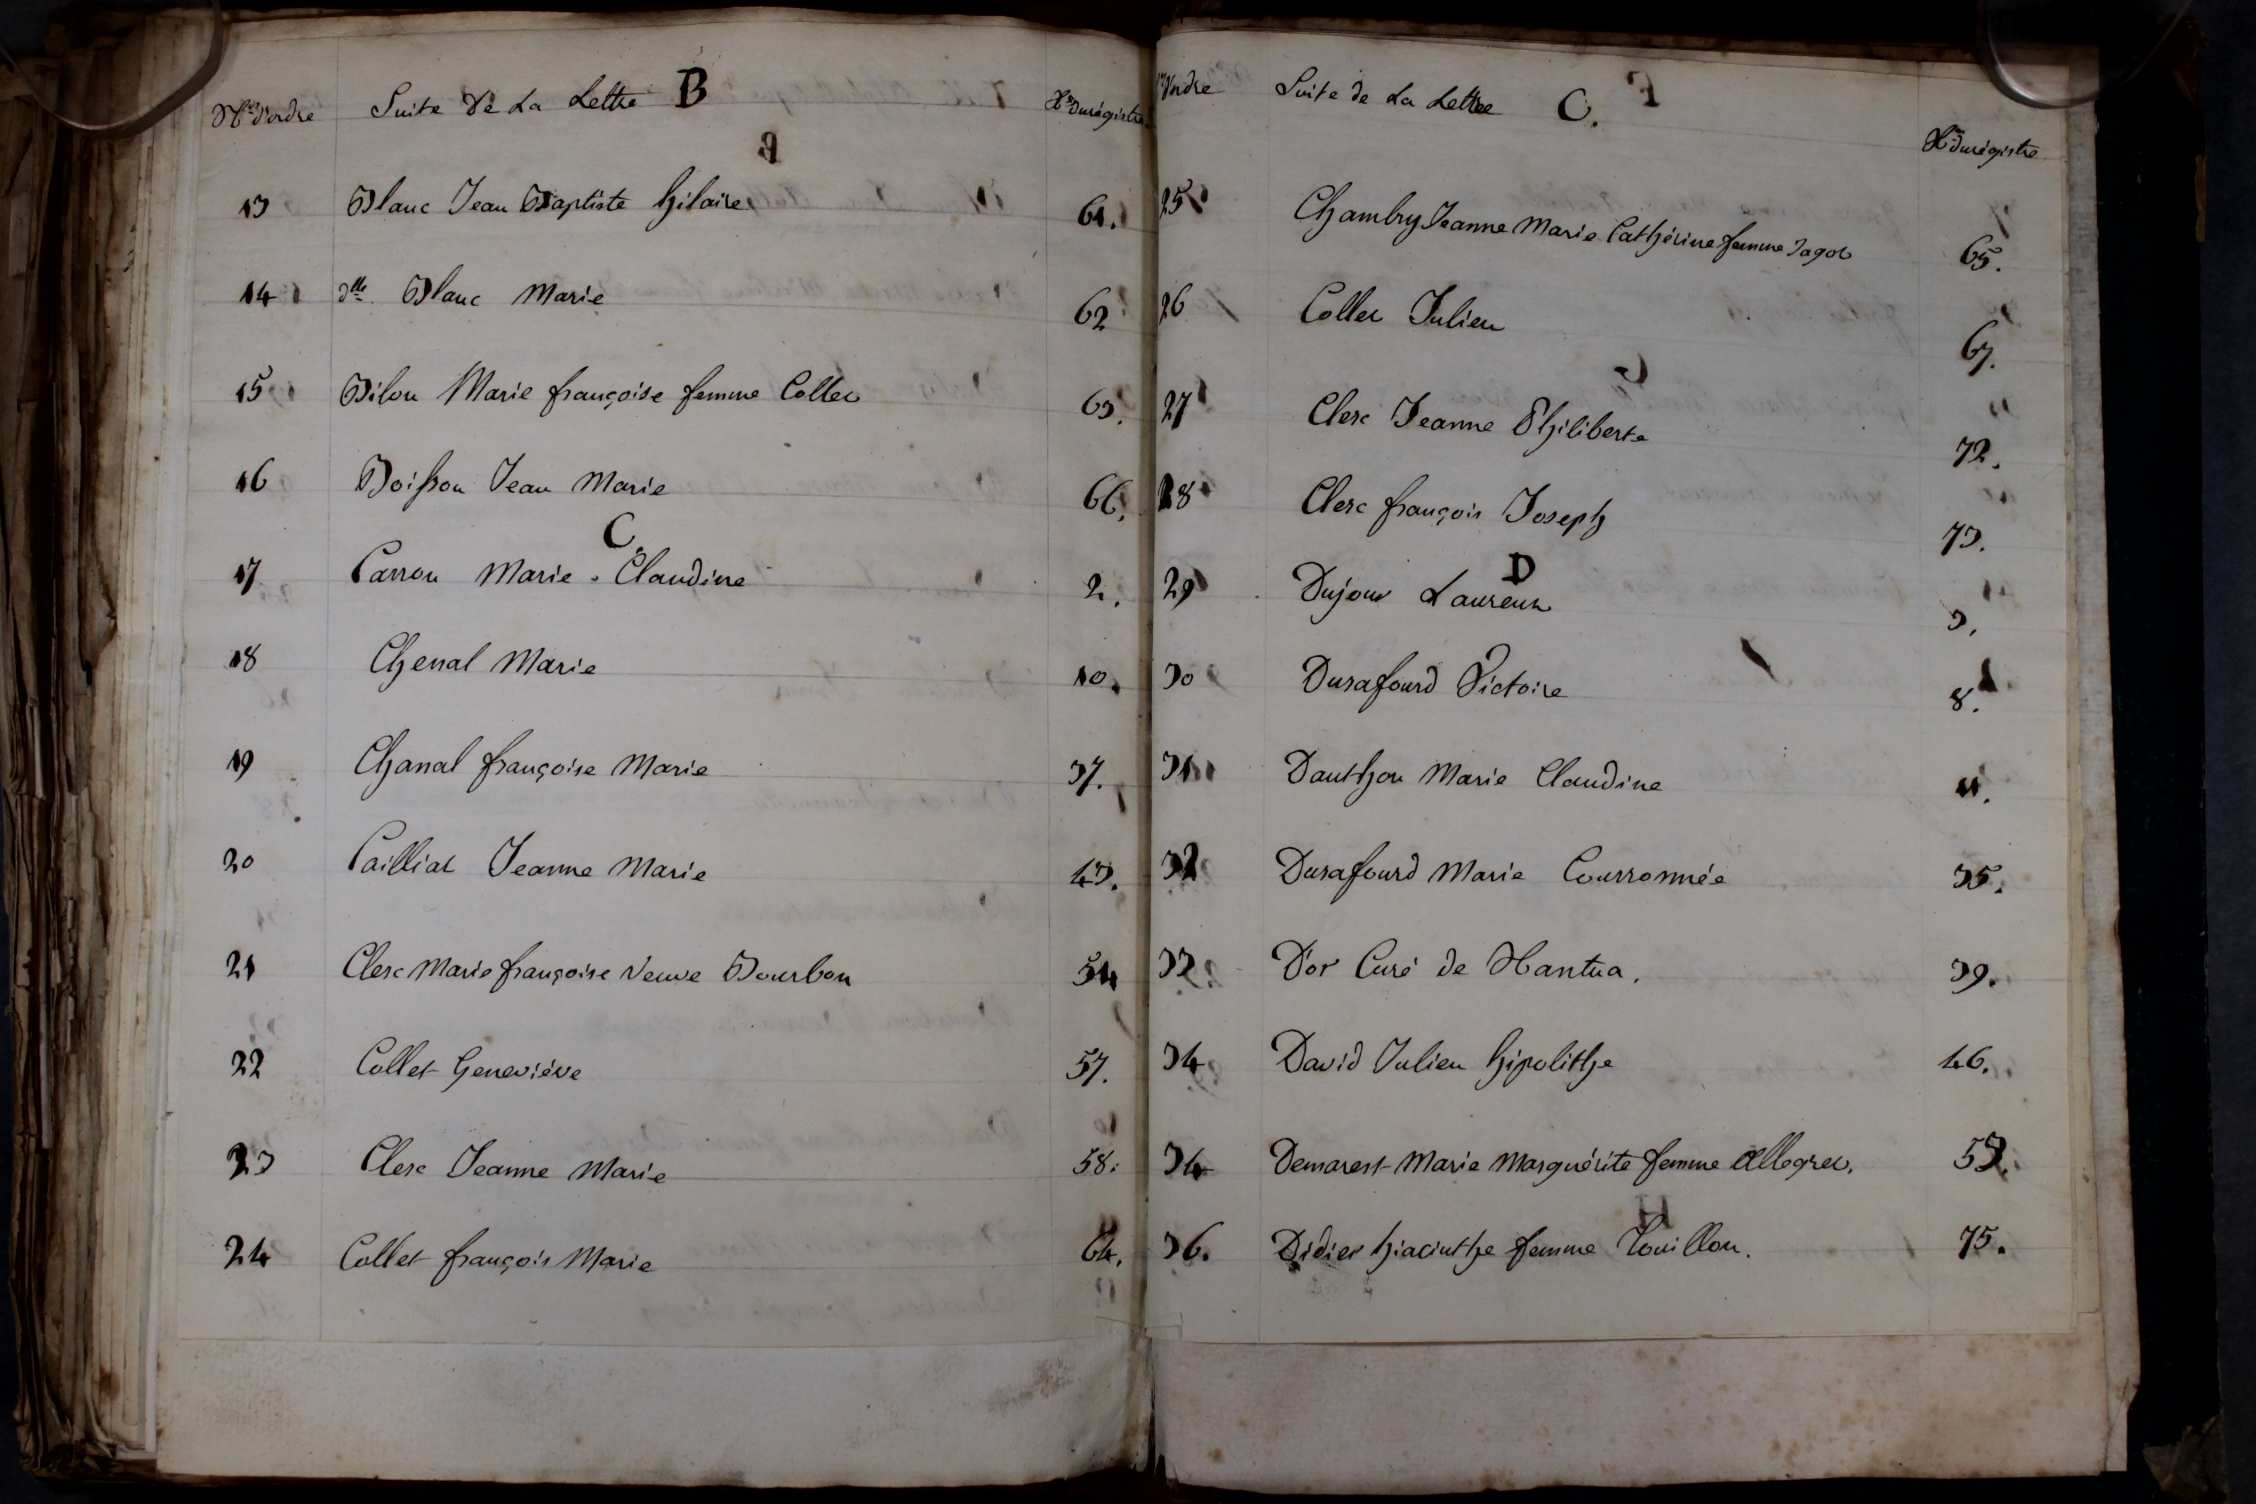 Nos d'ordre Suite De La Lettre B Nos Du régistre
13 Blanc Jean Baptiste hilaire 61.
14 dlle Blanc Marie 62
15 Bilon Marie françoise femme Collet 63.
16 Boisson Jean Marie 66.
C.
17 Carron Marie Claudine 2.
18 Chenal Marie 10.
19 Chanal françoise Marie 37.
20 Cailliat Jeanne Marie 43.
21 Clerc Marie françoise Veuve Bourbon 54
22 Collet Geneviéve 57.
23 Clerc Jeanne Marie 58.
24 Collet françois Marie 64.
d'ordre Suite de La Lettre C. Nos Du régistre
25 Chambry Jeanne Marie Cathérine femme Jagot 65.
26 Collet Julien 67.
27 Clerc Jeanne Philiberte 72.
28 Clerc françois Joseph 73.
D
29 Dujour Laurent 3.
30 Durafourd Victoire 8.
31 Danthon Marie Claudine 11.
32 Durafourd Marie Courronnée 35.
33 D'or Curé de Nantua. 39.
34 David Julien hipolithe 46.
34 Demarest Marie Marguérite femme Allegret. 53.
36. Didier hiacinthe femme Touillon. 75.